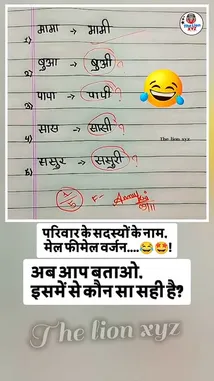 THE LION
XYZ
1) मामा → मामी
2) बुआ → बुऔ ?
3) पापा → पापी ?
4) सास → सासी ?
5) ससुर → ससुरी ?
The lion xyz
परिवार के सदस्यों के नाम.
मेल फीमेल वर्जन....😂🤩!
अब आप बताओ.
इसमें से कौन सा सही है?
The lion xyz